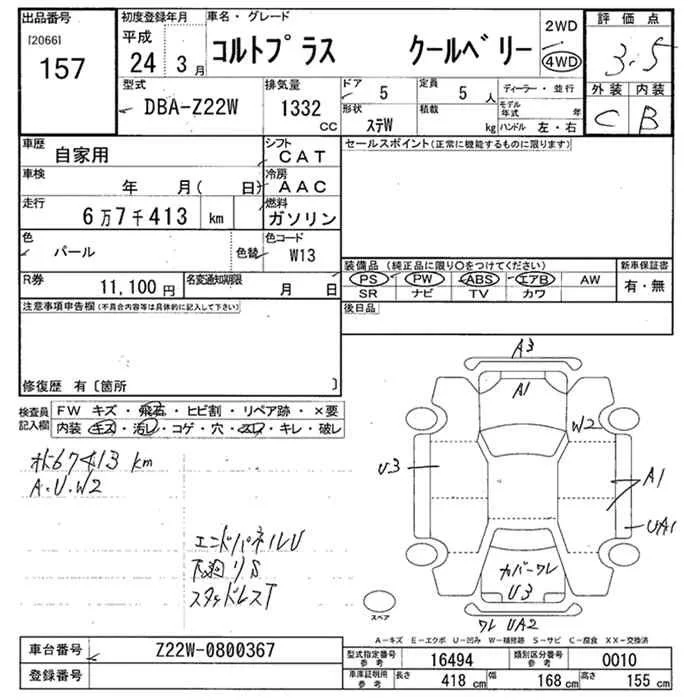 出品番号 初度登録年月 車名・グレード 2WD 評価点
[2066] 平成 コルトプラス クールベリー 4WD 3.5
157 24 3月
型式 排気量 ドア 定員 ディーラー・並行 外装 内装
DBA-Z22W 1332 cc 5 5人 C B
形状 積載 モデル年式 年
ステW kg ハンドル 左・右
車歴 シフト セールスポイント(正常に機能するものに限ります)
自家用 CAT
車検 冷房
年 月( 日) AAC
走行 燃料
6万7千413 km ガソリン
色 色替 色コード
パール W13
装備品(純正品に限り○をつけてください) 新車保証書
R券 名変通知期限 PS PW ABS エアB AW 有・無
11,100円 月 日 SR ナビ TV カワ
注意事項申告欄(不具合内容等は具体的に記入して下さい) 後日品
修復歴 有〔箇所 〕
検査員記入欄 FW キズ・飛石・ヒビ割・リペア跡・×要
内装・キズ・汚レ・コゲ・穴・スレ・キレ・破レ
67413 km
A.U.W2
エンドパネルU
下廻りS
スタッドレスT
A3
A1
W2
U3
A1
UA1
カバーワレ
U3
ワレ UA2
スペア
A-キズ E-エクボ U-凹み W-補修跡 S-サビ C-腐食 XX-交換済
車台番号 Z22W-0800367
登録番号
型式指定番号 参考 16494 類別区分番号 参考 0010
車庫証明用 参考 長さ 418cm 幅 168cm 高さ 155cm